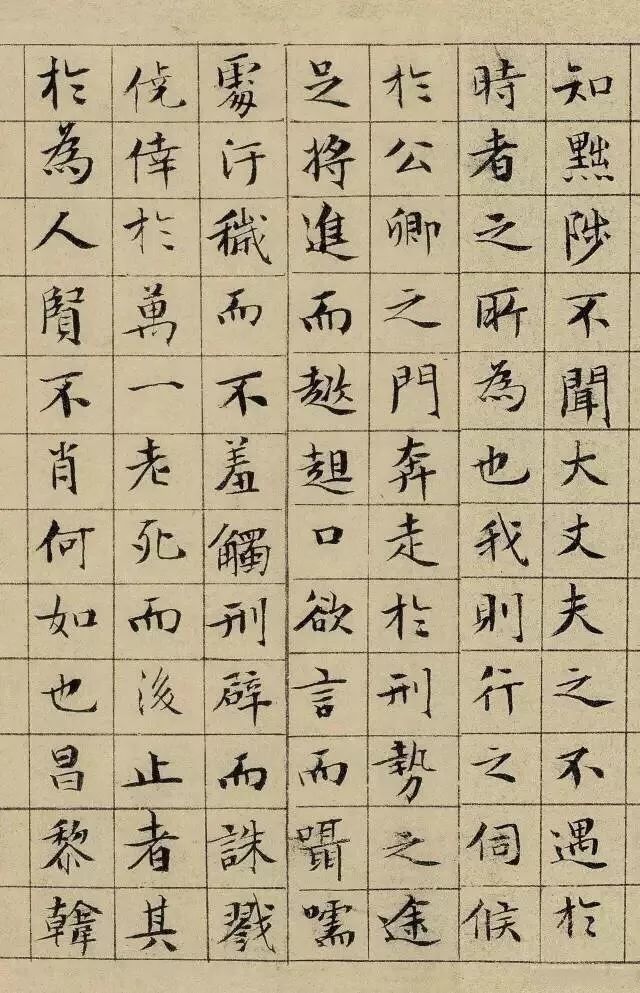 知黜陟不聞大丈夫之不遇於
時者之所為也我則行之伺候
於公卿之門奔走於刑勢之途
足將進而趑趄口欲言而囁嚅
處汙穢而不羞觸刑辟而誅戮
僥倖於萬一老死而後止者其
於為人賢不肖何如也昌黎韓